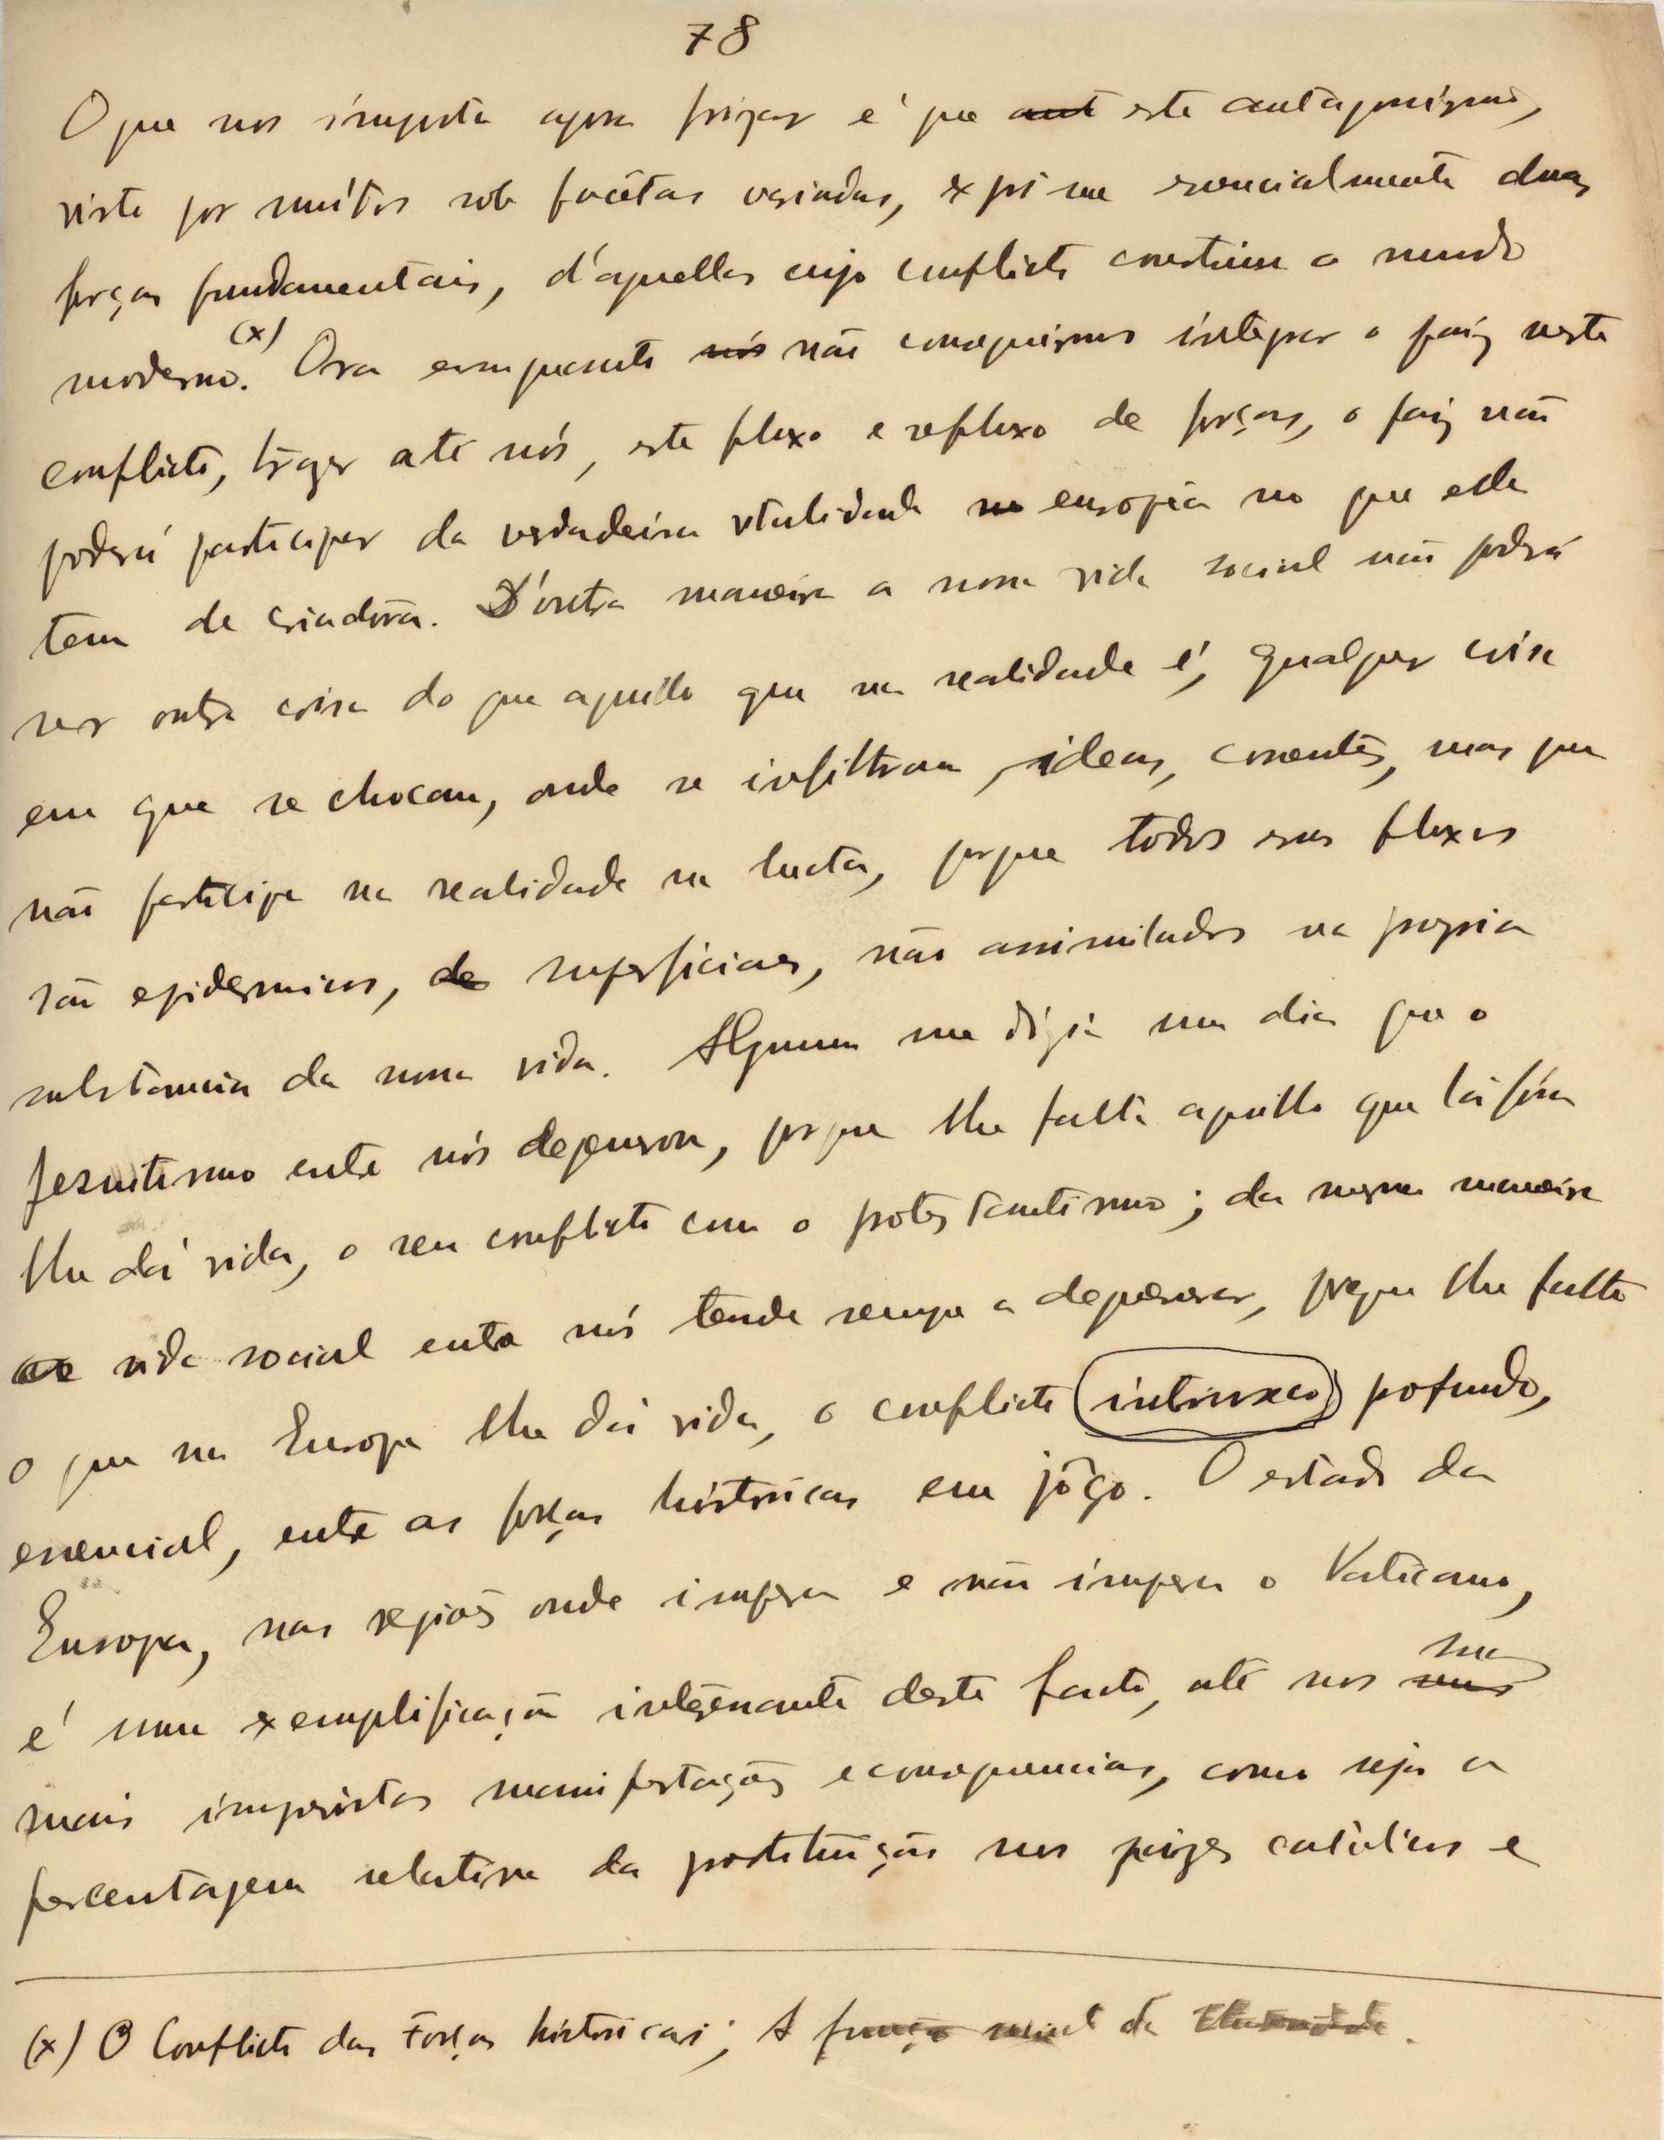 78
O que nos importa agora frizar é que ant este antagonismo,
visto por muitos sob facêtas variadas, exprime essencialmente duas
forças fundamentais, d'aquellas cujo conflicto constitue o mundo
moderno. (x) Ora emquanto nós não conseguirmos integrar o paiz neste
conflicto, trazer até nós, este fluxo e refluxo de forças, o paiz não
poderá participar da verdadeira vitalidade na europêa no que ella
tem de criadôra. D'outra maneira a nossa vida social não podrá
ser outra coisa do que aquillo que na realidade é, qualquer coisa
em que se chocam, onde se infiltram, ideas, correntes, mas que
não participa na realidade na lucta, porque todos esses fluxos
são epidermicos, de superficiaes, não assimilados na propria
substancia da nossa vida. Alguem me dizia um dia que o
jesuitismo entre nós degenerou, porque lhe falta aquillo que lá fóra
lhe dá vida, o seu conflicto com o protestantismo; da mesma maneira
a vida social entre nós tende sempre a degenerar, porque lhe falta
o que na Europa lhe dá vida, o conflicto intrinxeco profundo,
essencial, entre as forças históricas em jôgo. O estado da
Europa, nas regiões onde impera e não impera o Vaticano,
é uma exemplificação interessante deste facto, até nos suas
mais imprevistas manifestações e consequencias, como seja a
percentagem relativa da prostituição nos paizes católicos e
(x) O Conflicto das Forças históricas; A função social da